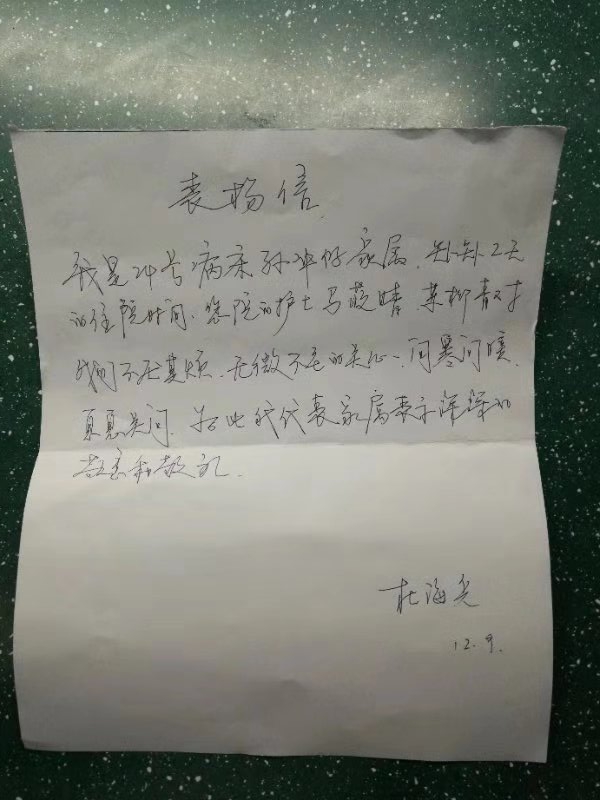 表扬信
我是24号病床孙 家属、短短2天
的住院时间、您院的护士马 晴、 柳青对
我们不厌其烦、无微不至的关心、问寒问暖、
关问、为此我代表家属表示深深的
和敬礼.
杜海光
12.9.